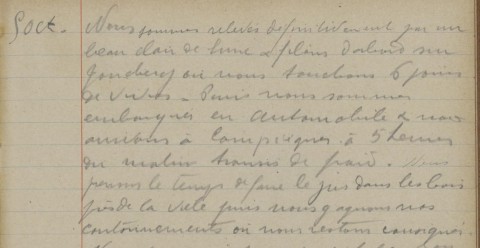 9 Oct. Nous sommes relevés définitivement par un
beau clair de lune & filons d'abord sur
où nous touchons 6 jours
de vivres. Puis nous sommes
embarqués en automobile & nous
arrivons à Compiègne à 5 heures
du matin transis de froid. Nous
prenons le temps de faire le jus dans les bois
près de la ville puis nous gagnons nos
cantonnements où nous restons